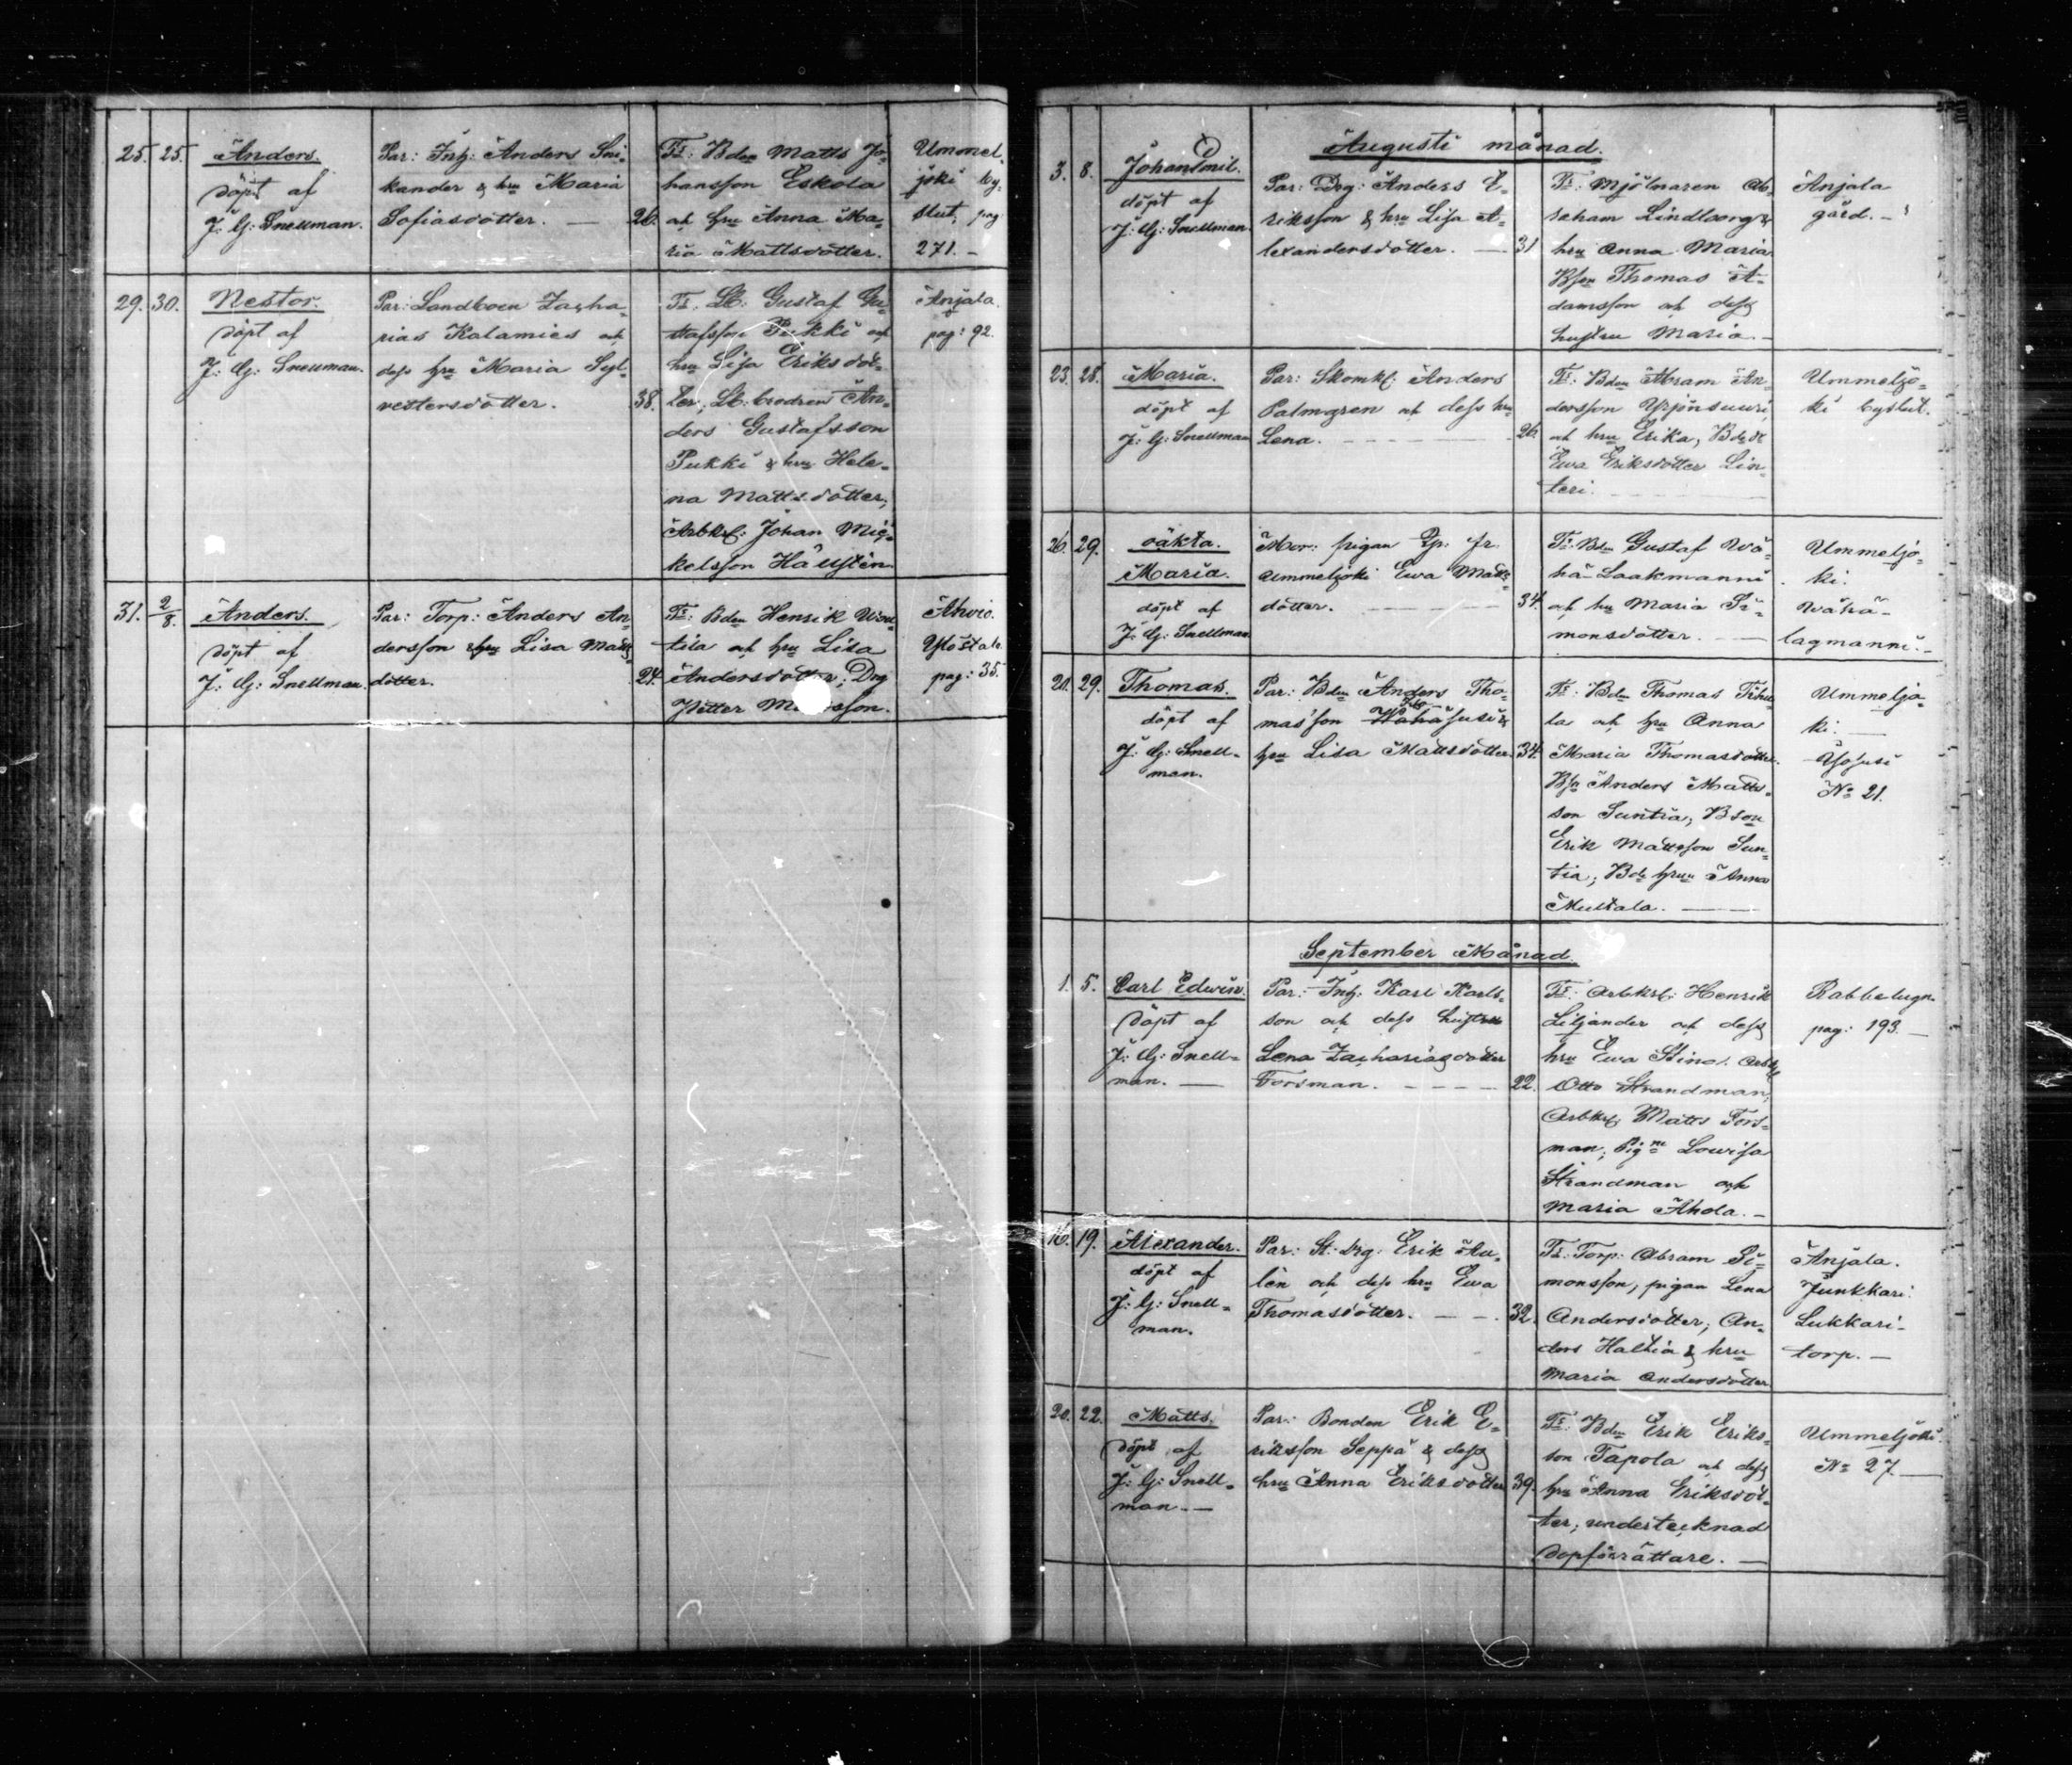 25. 25. Anders.
döpt af
J. G: Snellman.
Par: Inh: Anders Sni-
kander & hru Maria
Sofiasdotter. — 26.
Ts: Bden Matts Jo-
hansson Eskola
och hru Anna Ma-
ria Mattsdotter.
Ummel-
joki by-
slut, pag
271. –
29. 30. Nestor.
döpt af
J: G: Snellman.
Par: Landboen Zacha-
rias Kalamies och
dess hru Maria Syl-
vestersdotter. 38.
Ts. Lb: Gustaf Gu-
stafsson Pukki och
hru Lisa Eriksdot-
ter, Lb: brodren An-
ders Gustafsson
Pukki & hru Hele-
na Mattsdotter,
Arbkrl: Johan Mic-
kelsson Hällstén.
Anjala.
pag: 92.
31. 2/8. Anders.
döpt af
J: G: Snellman.
Par: Torp: Anders An-
dersson & hru Lisa Matts-
dotter. 24.
Ts: Bden Henrik
tila och hru Lisa
Andersdotter; Drg
Petter
Ahvio.
Ylöstalo
pag: 35.
Augusti månad.
3. 8. Johan Emil.
döpt af
J: G: Snellman.
Par: Drg: Anders E-
riksson & hru Lisa A-
lexandersdotter. — 31
Ts: Mjölnaren Ab-
raham Lindborg &
hru Anna Maria
Bson Thomas A-
damsson och dess
hustru Maria. –
Anjala
gård. –
23. 28. Maria.
döpt af
J: G: Snellman
Par: Skomk: Anders
Palmgren och dess hru
Lena. 26.
Ts: Bden Abram An-
dersson Yrjönsuuri
och hru Erika, Bddr
Ewa Eriksdotter Lin-
teri.
Ummeljo-
ki byslut.
26. 29. oäkta.
Maria.
döpt af
J: G: Snellman.
Mor: pigan Ip: fr
Ummeljoki Ewa Matts-
dotter. 34.
Ts: Bden Gustaf Wä-
hä-Laakmanni
och hru Maria Si-
monsdotter. —
Ummeljo-
ki.
Wähä-
lagmanni. –
20. 29. Thomas.
döpt af
J: G: Snell-
man.
Par: Bden Anders Tho-
masson Wähäsusi &
hru Lisa Mattsdotter. 34.
Ts: Bden Thomas
la och hru Anna
Maria Thomasdotter.
Bsn Anders Matts-
son Suntia, Bson
Erik Mattsson Sun-
tia, Bde hrun Anna
Mustala. —
Ummeljo-
ki. —
Ylösusi
No 21.
September Månad.
1. 5. Carl Edwin.
döpt af
J: G: Snell-
man. —
Par: Inh: Karl Karls-
son och dess hustru
Lena Zachariasdotter
Forsman. 22.
Ts: Arbkrl: Henrik
Liljander och dess
hru Ewa Stina. Arbkrl
Otto Strandman,
Arbkrl Matts Fors-
man; Pigne Lowisa
Strandman och
Maria Ahola. –
Rabbelugn.
pag: 193. —
16. 19. Alexander.
döpt af
J: G: Snell-
man.
Par: St: drg: Erik Au-
lén och dess hru Ewa
Thomasdotter. — 32.
Ts: Torp: Abram Si-
monsson, pigan Lena
Andersdotter; An-
ders Haltia & hru
Maria Andersdotter
Anjala.
Junkkari.
Lukkari-
torp. –
20. 22. Matts.
döpt af
J: G: Snell-
man. —
Par: Bonden Erik E-
riksson Seppä & dess
hru Anna Eriksdotter 39.
Ts: Bden Erik Eriks-
son Tapola och dess
hru Anna Eriksdot-
ter, undertecknad
dopförrättare. —
Ummeljoki.
No 27. —